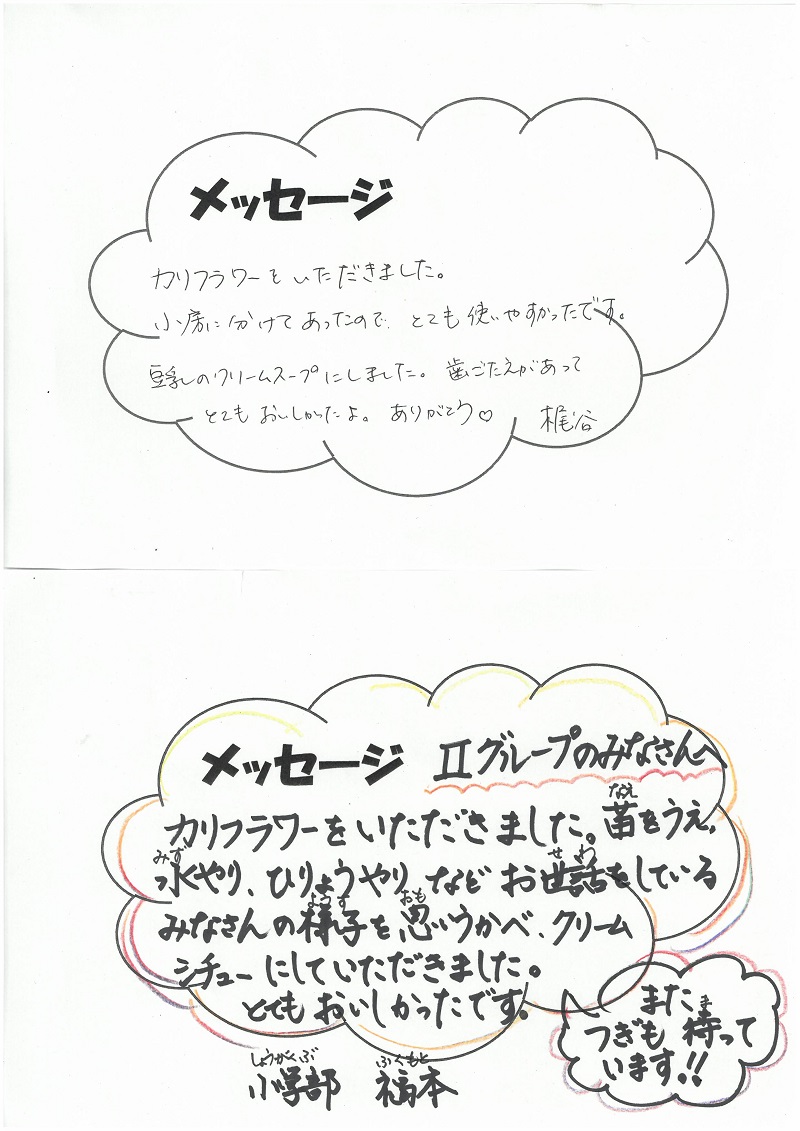 メッセージ
カリフラワーをいただきました。
小房に分けてあったので、とても使いやすかったです。
豆乳のクリームスープにしました。歯ごたえがあって
とてもおいしかったよ。ありがとう♡ 梶谷
メッセージ Ⅱグループのみなさんへ
カリフラワーをいただきました。苗をうえ、
なえ
水やり、ひりょうやり、などお世話をしている
みず せわ
みなさんの様子を思いうかべ、クリーム
ようす おも
シチューにしていただきました。
とてもおいしかったです。
また
つぎも待って
ま
います!!
しょうがくぶ ふくもと
小学部 福本